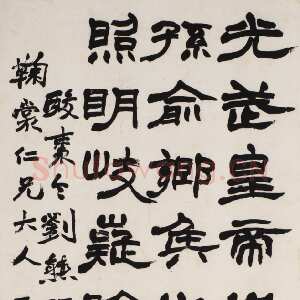 光武皇帝
孫俞鄉侯
照明岐嶷
酸棗令劉熊
鞠裳仁兄大人